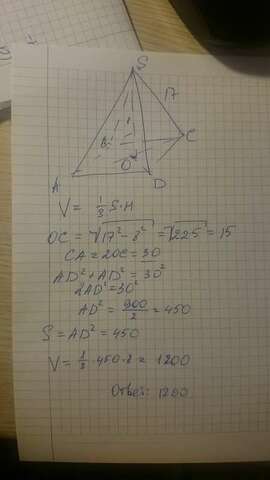 S
17
B
C
O
A
D
V = 1/3 S·H
OC = √17²-8² = √225 = 15
CA = 2OC = 30
AD²+AD² = 30²
2AD² = 30²
AD² = 900/2 = 450
S = AD² = 450
V = 1/3 · 450 · 8 = 1200
Ответ: 1200